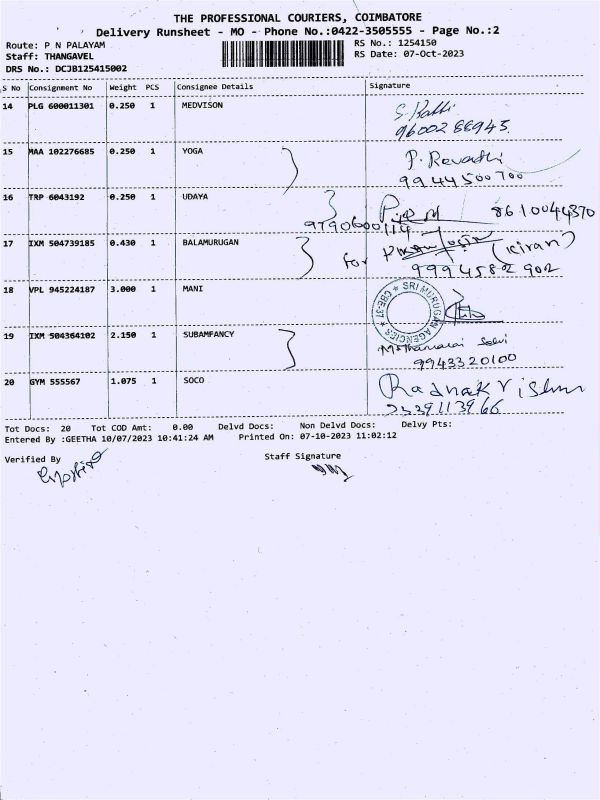 THE PROFESSIONAL COURIERS, COIMBATORE
Delivery Runsheet - MO - Phone No.:0422-3505555 - Page No.:2
Route: P N PALAYAM RS No.: 1254150
Staff: THANGAVEL RS Date: 07-Oct-2023
DRS No.: DCJB125415002
S No Consignment No Weight PCS Consignee Details Signature
14 PLG 600011301 0.250 1 MEDVISON
9600288945
15 MAA 102276685 0.250 1 YOGA P. Revathi
9944500700
16 TRP 6043192 0.250 1 UDAYA 8610044370
9790600114
17 IXM 504739185 0.430 1 BALAMURUGAN for (Kiran)
9994582902
18 VPL 945224187 3.000 1 MANI
SRI MURUGAN AGENCIES * CBE-37 *
19 IXM 504364102 2.150 1 SUBAMFANCY
9943320100
20 GYM 555567 1.075 1 SOCO
Tot Docs: 20 Tot COD Amt: 0.00 Delvd Docs: Non Delvd Docs: Delvy Pts:
Entered By :GEETHA 10/07/2023 10:41:24 AM Printed On: 07-10-2023 11:02:12
Verified By Staff Signature